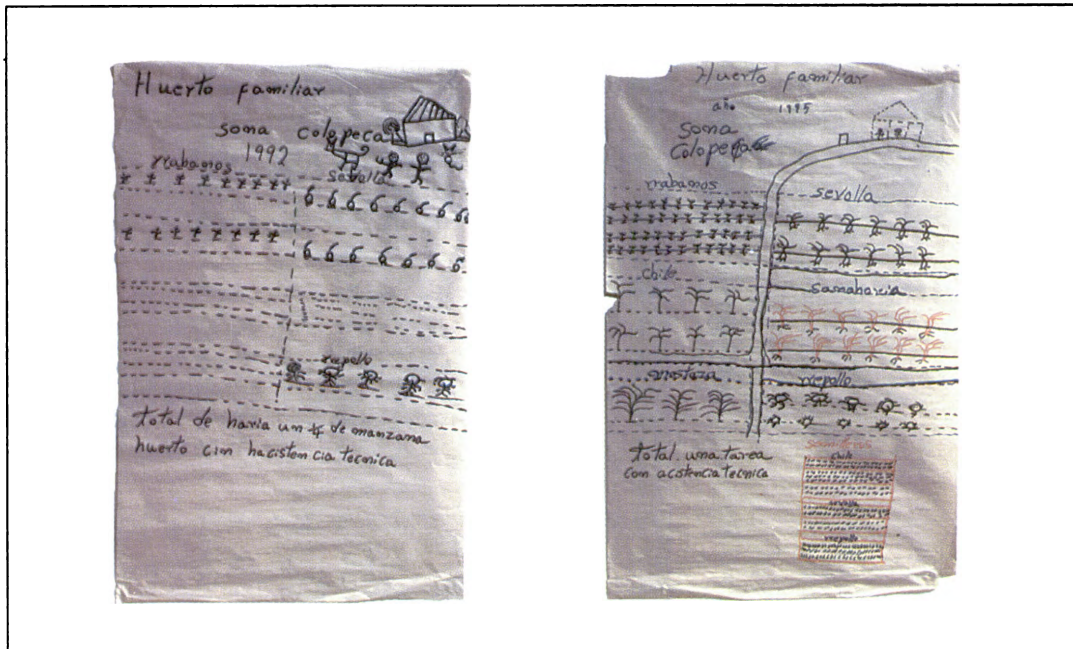 Huerto familiar
sona Colopeca
1992
rrabamos
sevolla
rrepollo
total de haria un 1/4 de manzana
huerto cim hacistencia tecnica
Huerto familiar
año 1995
sona
Colopeca
rrabamos
sevolla
chile
samahoria
mostaza
rrepollo
total una tarea
com acistencia tecnica
chile
sevolla
rrepollo